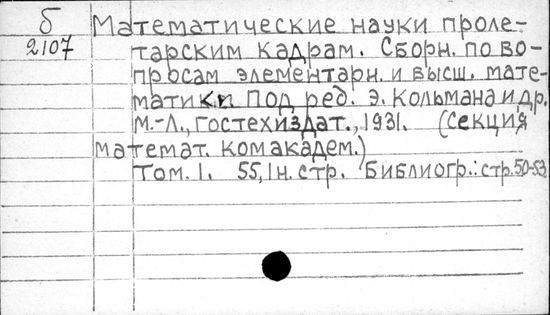 б Математические науки проле-
2107 тарским кадрам. Сборн. по во-
просам элементарн. и высш. мате-
матики Под ред. Э. Кольмана и др.
М.-Л., гостехиздат., 1931. (секция
математ. комакадем.)
Том. 1. 55, 1 н. стр. Библиогр.: стр. 50-53